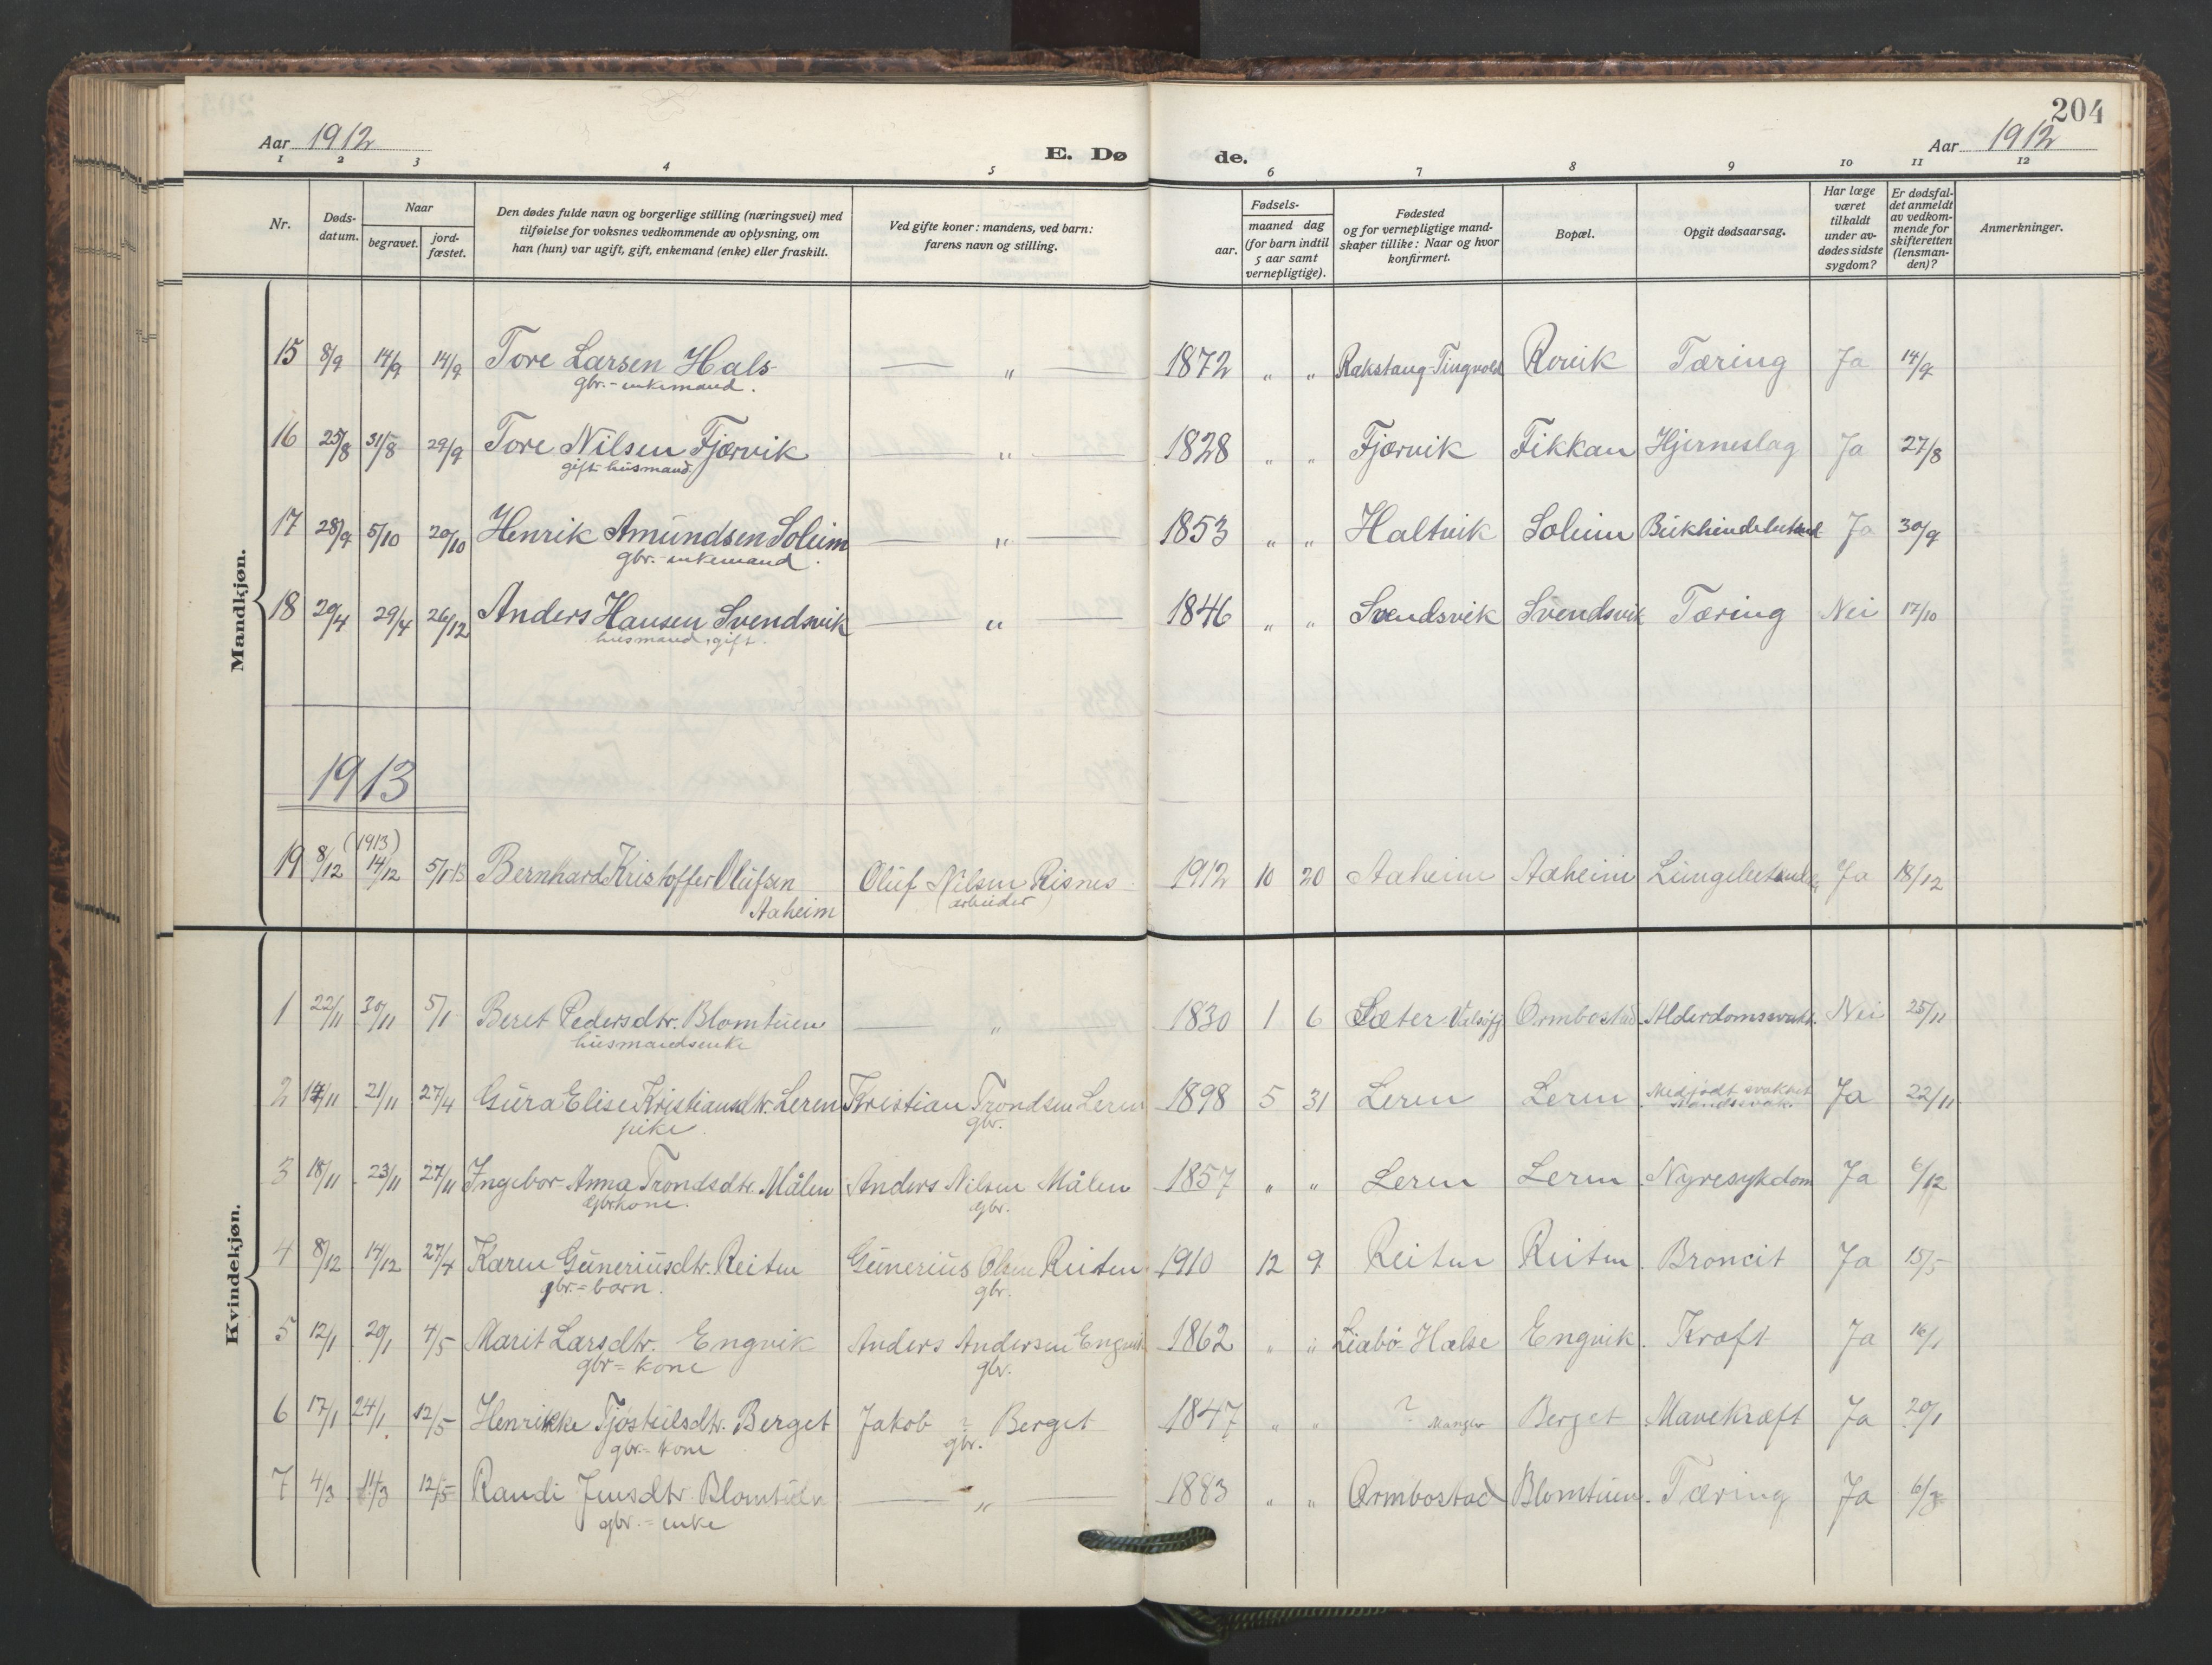 204
Aar 1912
E. Dø
de.
Aar 1912
1 2 3 4 5 6 7 8 9 10 11 12
Nr.
Døds-
datum.
Naar
begravet.
jord-
fæstet.
Den dødes fulde navn og borgerlige stilling (næringsvei) med
tilføielse for voksnes vedkommende av oplysning, om
han (hun) var ugift, gift, enkemand (enke) eller fraskilt.
Ved gifte koner: mandens, ved barn:
farens navn og stilling.
Fødsels-
aar.
maaned dag
(for barn indtil
5 aar samt
vernepligtige).
Fødested
og for vernepligtige mand-
skaper tillike: Naar og hvor
konfirmert.
Bopæl.
Opgit dødsaarsag.
Har læge
været
tilkaldt
under av-
dødes sidste
sygdom?
Er dødsfal-
det anmeldt
av vedkom-
mende for
skifteretten
(lensman-
den)?
Anmerkninger.
Mandkjøn.
15 8/9 14/9 14/9 Tore Larsen Hals — „ — 1872 „ „ Rakstang-Tingvold Rovik Tæring Ja 14/9
gbr.-enkemand.
16 25/8 31/8 29/9 Tore Nilsen Fjærvik — „ — 1828 „ „ Fjærvik Fikkan Hjerneslag Ja 27/8
gift husmand.
17 28/9 5/10 20/10 Henrik Amundsen Solum — „ — 1853 „ „ Haltvik Solum Ja 30/9
gbr.-enkemand.
18 20/4 29/4 26/12 Anders Hansen Svendsvik — „ — 1846 „ „ Svendsvik Svendsvik Tæring Nei 17/10
husmand, gift.
1913
(1913)
19 8/12 14/12 5/1-13 Bernhard Kristoffer Olufsen Oluf Nilsen Risnes 1912 10 20 Aaheim Aaheim Ja 18/12
Aaheim (arbeider)
Kvindekjøn.
1 22/11 30/11 5/1 Beret Pedersdtr. Blomtuen — „ 1830 1 6 Sæter Valsøfj Ormbostad Alderdomssvakh. Nei 25/11
husmandsenke
2 21/11 27/4 Gura Elise Kristiansdtr. Leren Kristian Trondsen Leren 1898 5 31 Leren Leren Medfødt svakhet Ja 22/11
pike. gbr.
3 18/11 23/11 27/11 Ingebor Anna Trondsdtr. Målen Anders Nilsen Målen 1857 „ „ Leren Leren Nyresykdom Ja 6/12
gbrkone. gbr.
4 8/12 14/12 27/4 Karen Guneriusdtr. Reiten Gunerius Olsen Reiten 1910 12 9 Reiten Reiten Broncit Ja 15/5
gbr.=barn. gbr.
5 12/1 20/1 4/5 Marit Larsdtr. Engvik Anders Andersen Engvik 1862 „ „ Liabø-Halse Engvik Kræft Ja 16/1
gbr=kone gbr.
6 17/1 24/1 12/5 Henrikke Tjøstulsdtr. Berget Jakob ? Berget 1847 „ „ ? Mangler Berget Mavekræft Ja 20/1
gbr.=kone gbr.
7 4/3 11/3 12/5 Randi Jensdtr. Blomtuen — „ — 1883 „ „ Ormbostad Blomtuen Tæring Ja 6/3
gbr.=enke